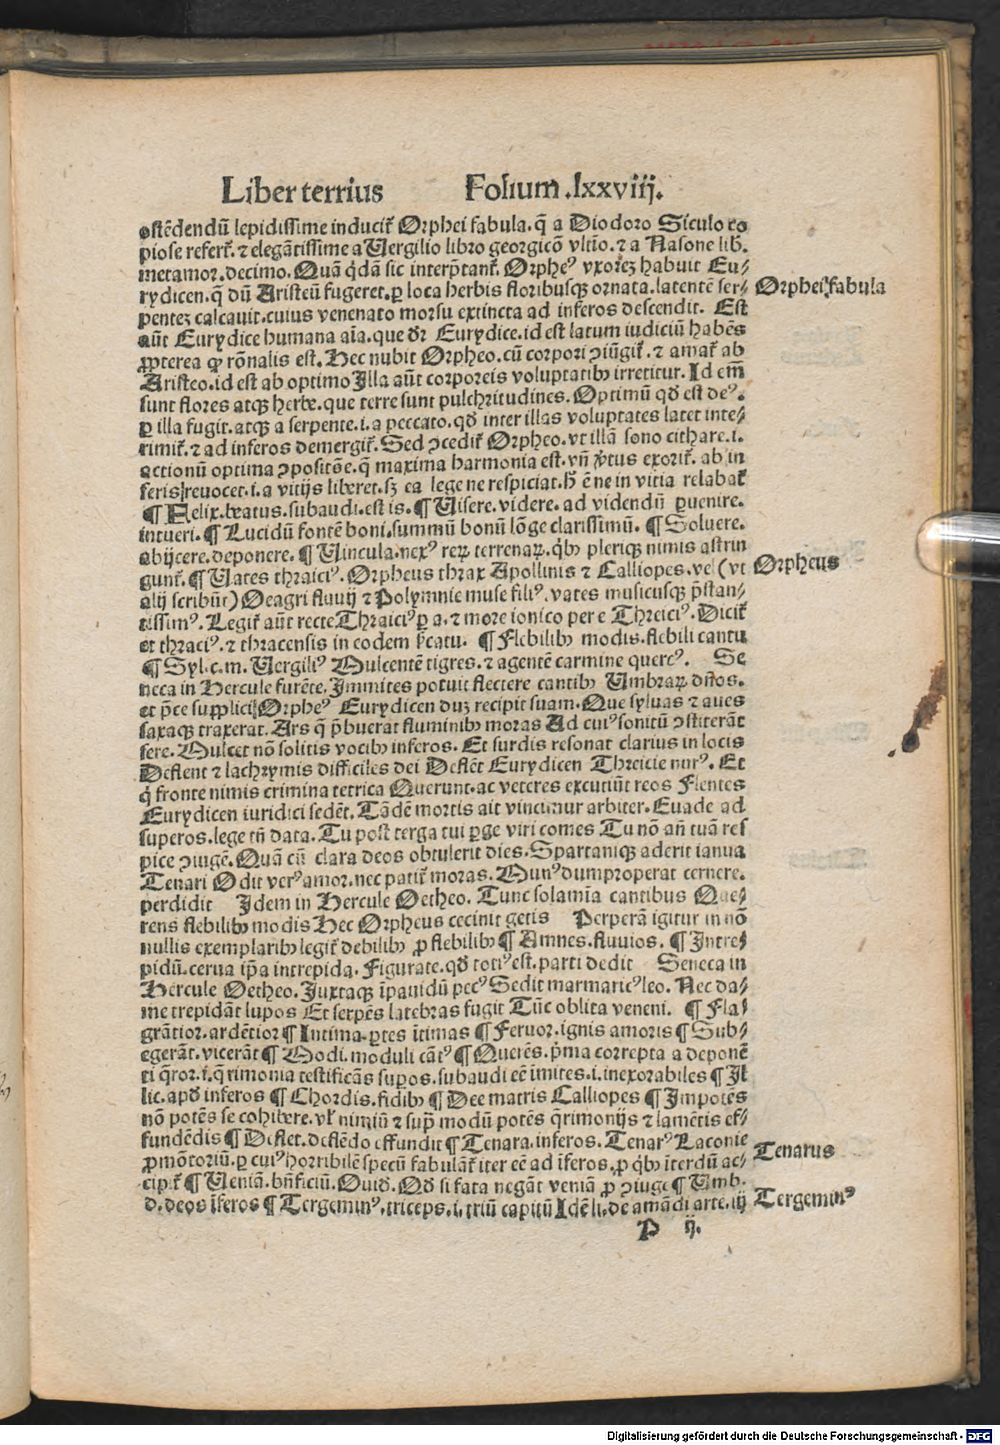 Liber terrius Folium .lxxviij.
ostēdendū lepidissime inducit᷑ Orphei fabula. q̄ a Diodoro Siculo co
piose refert᷑. ⁊ elegātissime a Uergilio libro georgicō vltīo. ⁊ a Nasone lib̄.
metamor. decimo. Quā q̇dā sic interp̄tant᷑. Orpheꝰ vxoreꝫ habuit Eu⸗
rydicen. q̄ dū Aristeū fugeret. ꝑ loca herbis floribusqꝫ ornata. latentē ser⸗
Orphei fabula
penteꝫ calcauit. cuius venenato morsu extincta ad inferos descendit. Est
aūt Eurydice humana aīa. que dr̄ Eurydice. id est latum iudiciū habēs
ꝓpterea qꝫ rōnalis est. Hec nubit Orpheo. cū corpori ꝯiūgit᷑. ⁊ amat᷑ ab
Aristeo. id est ab optimo Illa aūt corporeis voluptatibꝫ irretitur. Id em̄
sunt flores atqꝫ herbe. que terre sunt pulchritudines. Optimū qd̄ est deꝰ.
ꝑ illa fugit. atqꝫ a serpente. i. a peccato. qd̄ inter illas voluptates latet inte⸗
rimit᷑. ⁊ ad inferos demergit᷑. Sed ꝯcedit᷑ Orpheo. vt illā sono cithare. i.
actionū optima ꝯpositōe. q̄ maxima harmonia est. vn̄ v̓tus exorit᷑. ab in
feris reuocet. i. a vitijs liberet. sꝫ ea lege ne respiciat. h̄ ē ne in vitia relabat᷑
¶ Felix. beatus. subaudi. est is. ¶ Uisere. videre. ad videndū ꝑuenire.
intueri. ¶ Lucidū fontē boni. summū bonū lōge clarissimū. ¶ Soluere.
abijcere. deponere. ¶ Uincula. nexꝰ reꝝ terrenaꝝ. q̇bꝫ pleriqꝫ nimis astrin
gunt᷑. ¶ Uates thraiciꝰ. Orpheus thrax Apollinis ⁊ Calliopes. vel (vt
Orpheus
alij scribūt) Oeagri fluuij ⁊ Polymnie muse filiꝰ. vates musicusqꝫ p̄stan⸗
tissimꝰ. Legit᷑ aūt recte Thraiciꝰ ꝑ a. ⁊ more ionico per e Threiciꝰ. Dicit᷑
et thraciꝰ. ⁊ thracensis in eodem s̓catu. ¶ Flebilibꝫ modis. flebili cantu
¶ Syl. c. m. Uergiliꝰ Mulcentē tigres. ⁊ agentē carmine quercꝰ. Se
neca in Hercule furēte. Immites potuit flectere cantibꝫ Umbraꝝ dn̄os.
et p̄ce supplici Orpheꝰ Eurydicen duꝫ recipit suam. Que syluas ⁊ aues
saxaqꝫ traxerat. Ars q̄ p̄buerat fluminibꝫ moras Ad cuiꝰ sonitū ꝯstiterāt
fere. Mulcet nō solitis vocibꝫ inferos. Et surdis resonat clarius in locis
Deflent ⁊ lachrymis difficiles dei Deflēt Eurydicen Threicie nurꝰ. Et
q̇ fronte nimis crimina tetrica Querunt. ac veteres excutiūt reos Flentes
Eurydicen iuridici sedēt. Tādē mortis ait vincimur arbiter. Euade ad
superos. lege tn̄ data. Tu post terga tui ꝑge viri comes Tu nō an̄ tuā res
pice ꝯiugē. Quā cū clara deos obtulerit dies. Spartaniqꝫ aderit ianua
Tenari Odit verꝰ amor. nec patit᷑ moras. Munꝰ dum properat cernere.
perdidit Idem in Hercule Oetheo. Tunc solamīa cantibus Que⸗
rens flebilibꝫ modis Hec Orpheus cecinit getis Perperā igitur in nō
nullis exemplaribꝫ legit᷑ debilibꝫ ꝓ flebilibꝫ ¶ Amnes. fluuios. ¶ Intre⸗
pidū. cerua ip̄a intrepida. Figurate. qd̄ totiꝰ est. parti dedit Seneca in
Hercule Oetheo. Iuxtaqꝫ īpauidū pecꝰ Sedit marmaricꝰ leo. Nec da⸗
me trepidāt lupos Et serpēs latebras fugit Tūc oblita veneni. ¶ Fla⸗
grātior. ardētior ¶ Intima. ꝑtes ītimas ¶ Feruor. ignis amoris ¶ Sub⸗
egerāt. vicerāt ¶ Modi. moduli cātꝰ ¶ Querēs. p̄ma correpta a deponē
ti q̄ror. i. q̄rimonia testificās suꝑos. subaudi eē īmites. i. inexorabiles ¶ Il
lic. apd̓ inferos ¶ Chordis. fidibꝫ ¶ Dee matris Calliopes ¶ Impotēs
nō potēs se cohibere. vl̓ nimiū ⁊ sup̄ modū potēs q̄rimonijs ⁊ lamētis ef⸗
fundēdis ¶ Deflet. deflēdo effundit ¶ Tenara. inferos. Tenarꝰ Laconie
Tenarus
ꝓmōtoriū. ꝑ cuiꝰ horribilē specū fabulāt᷑ iter eē ad īferos. ꝓ q̇bꝫ īterdū ac⸗
cipit᷑ ¶ Ueniā. bn̄ficiū. Ouid. Qd̄ si fata negāt veniā ꝓ ꝯiuge ¶ Umb.
d. deos īferos ¶ Tergeminꝰ. triceps. i. triū capitū Idē li. de amādi arte. iij
Tergeminꝰ
P ij.
Digitalisierung gefördert durch die Deutsche Forschungsgemeinschaft - DFG